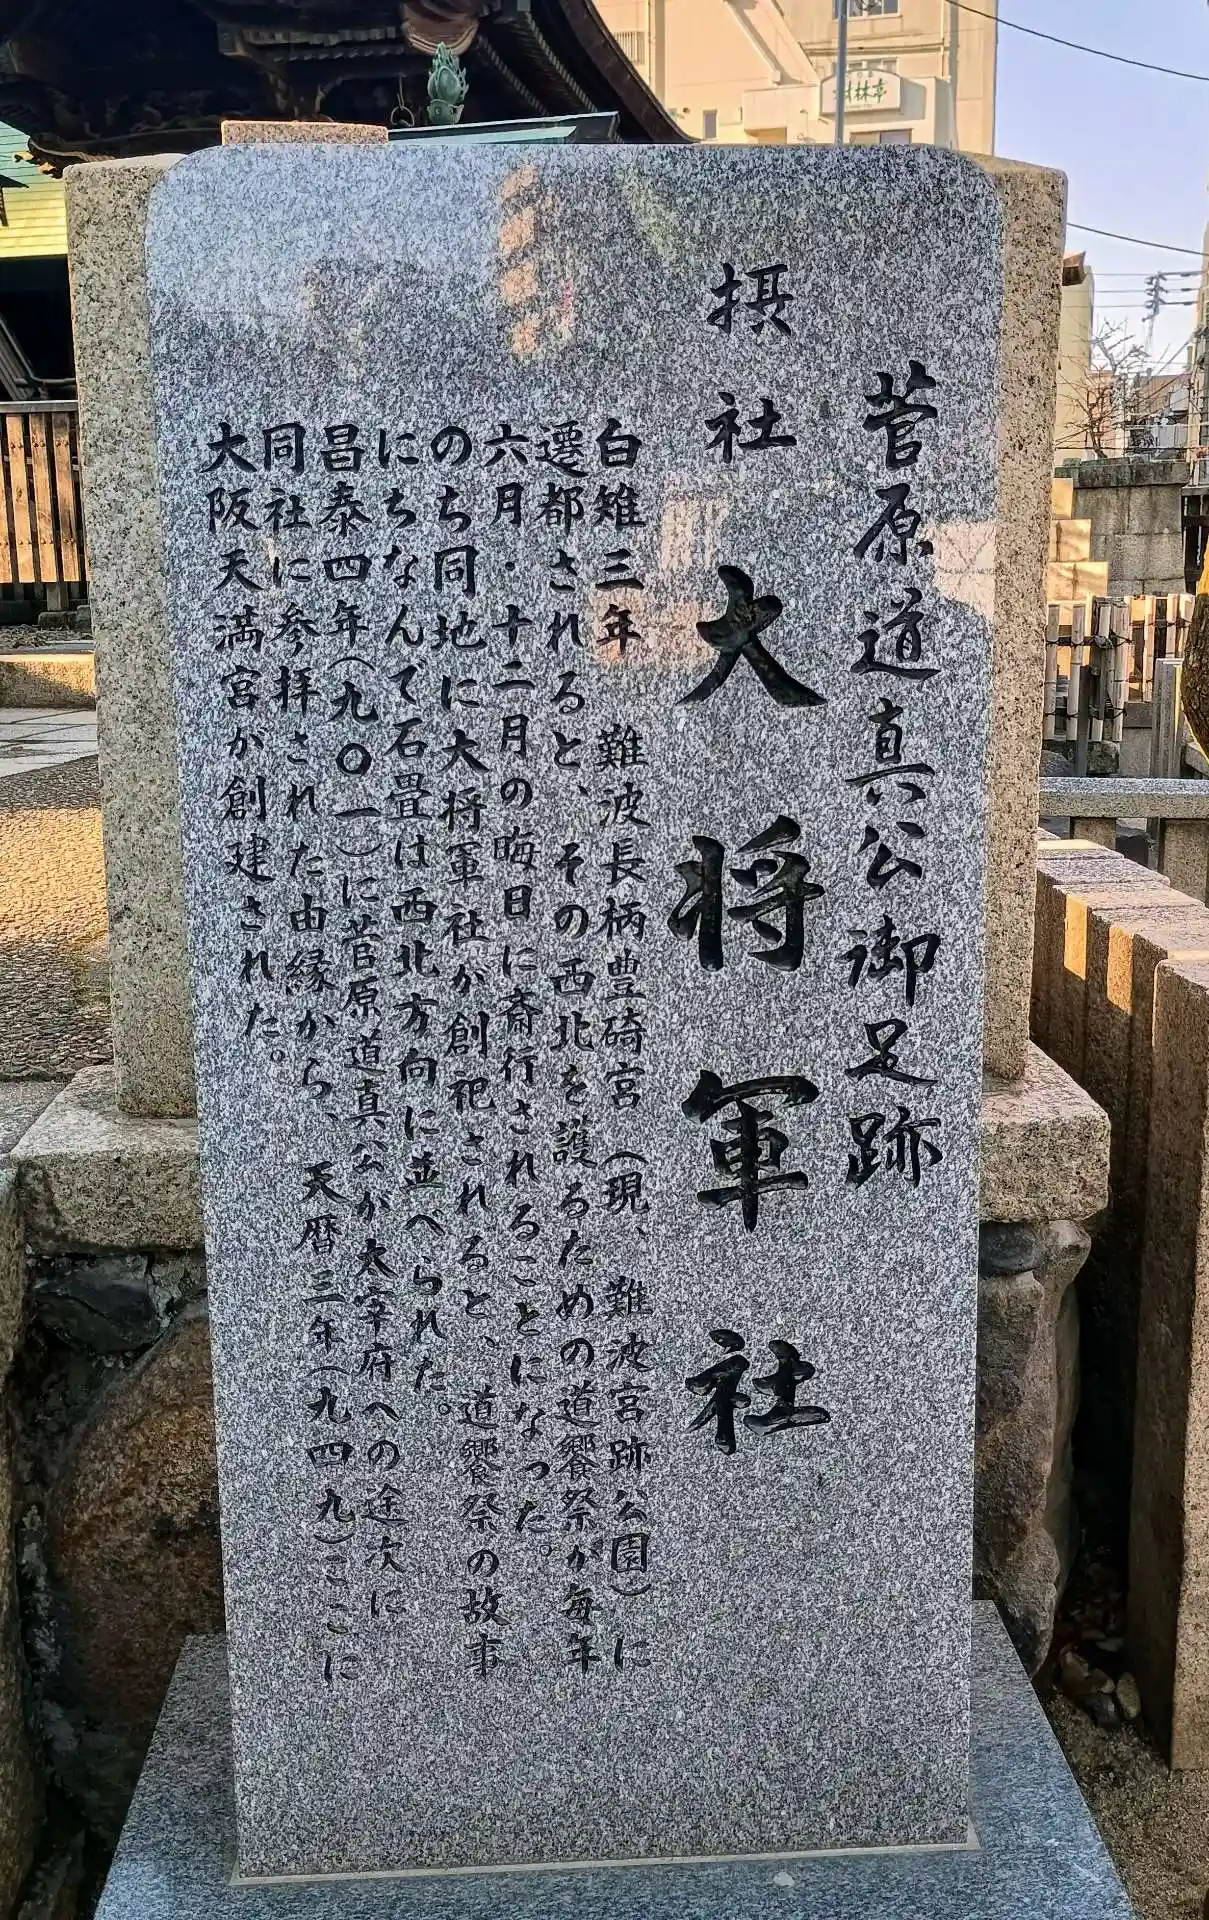 菅原道真公御足跡
摂社 大将軍社
白雉三年 難波長柄豊碕宮(現、難波宮跡公園)に
遷都されると、その西北を護るための道饗祭が毎年
六月・十二月の晦日に斎行されることになった。
のち同地に大将軍社が創祀されると、道饗祭の故事
にちなんで石畳は西北方向に並べられた。
昌泰四年(九〇一)に菅原道真公が太宰府への途次に
同社に参拝された由縁から、天暦三年(九四九)ここに
大阪天満宮が創建された。
林亭